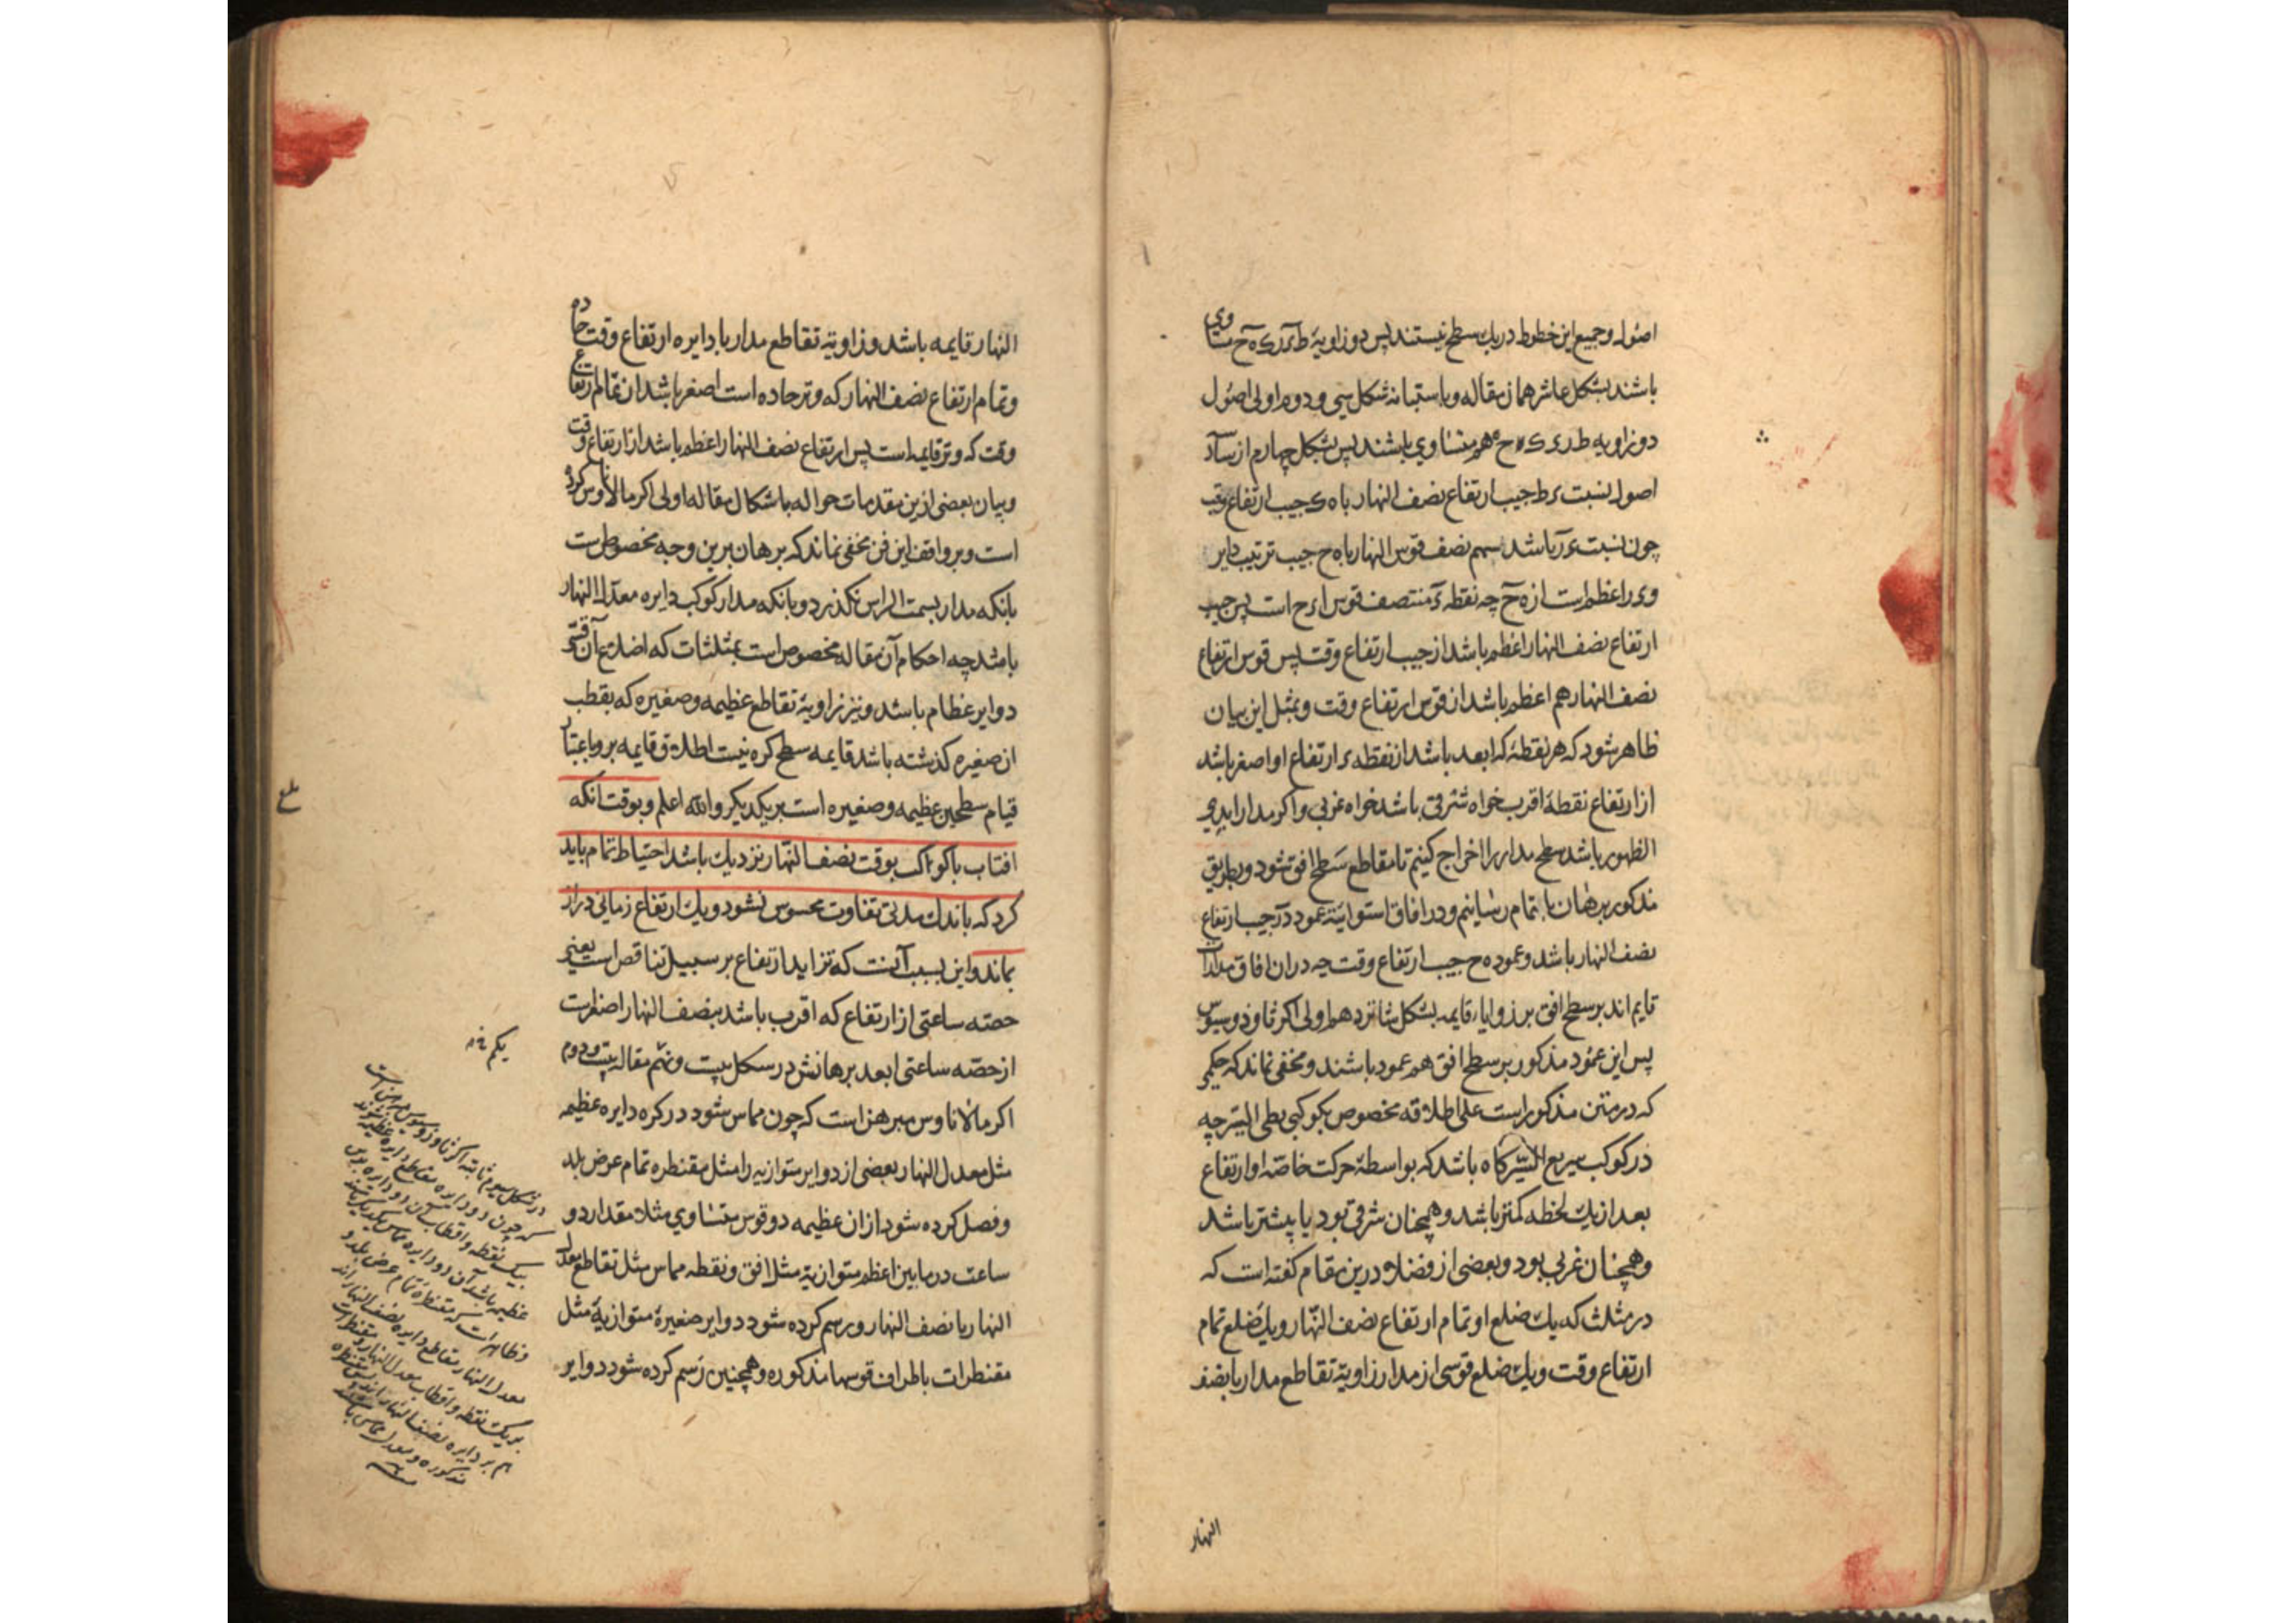 اصول و جمیع این خطوط در یک سطح نیستند پس دو زاویهٔ مساوی
باشند بشکل عاشر همان مقاله و باستبانه شکل سی و دوم اولی اصول
دو زاویه متساوی باشند پس بشکل چهارم از
اصول نسبت ی ط جیب ارتفاع نصف النهار با ه ک جیب ارتفاع وقت
چون نسبت باشد سهم نصف قوس النهار با ه ح جیب ترتیب دایر
و ی ر اعظم است از ه ح چه نقطه ی منتصف قوس ا ی ح است پس جیب
ارتفاع نصف النهار اعظم باشد از جیب ارتفاع وقت پس قوس ارتفاع
نصف النهار هم اعظم باشد از قوس ارتفاع وقت و بمثل این بیان
ظاهر شود که هر نقطهٔ که ابعد باشد از نقطه ی ارتفاع او اصغر باشد
از ارتفاع نقطهٔ اقرب خواه شرقی باشد خواه غربی و اکر مدار ابدی
الظهور باشد سطح مدار را اخراج کنیم تا مقاطع سطح افق شود و بطریق
مذکور برهان را بتمام رسانیم و در افاق استوائیه عمود جیب ارتفاع
نصف النهار باشد و عمود ه ح جیب ارتفاع وقت چه دران افاق مدارات
قایم اند بر سطح افق بر زوایا قایمه بشکل شانزدهم اولی اکر ثاوذوسیوس
پس این عمود مذکور بر سطح افق هم عمود باشند و مخفی نماند که حکمی
که در متن مذکور است علی اطلاقه مخصوص بکوکبی بطی السیر چه
در کوکب سریع السیر کاه باشد که بواسطهٔ حرکت خاصّه او ارتفاع
بعد از یک لحظه کمتر باشد و همچنان شرقی بود یا پیشتر باشد
و همچنان غربی بود و بعضی از فضلا درین مقام کفته است که
در مثلث که یک ضلع او تمام ارتفاع نصف النهار و یک ضلع تمام
ارتفاع وقت و یک ضلع قوسی از مدار زاویهٔ تقاطع مدار با نصف
النهار
النهار قایمه باشد و زاویهٔ تقاطع مدار با دایره ارتفاع وقت حاده
و تمام ارتفاع نصف النهار که وتر حاده است اصغر باشد از تمام ارتفاع
وقت که وتر قایمه است پس ارتفاع نصف النهار اعظم باشد از ارتفاع وقت
و بیان بعضی ازین مقدمات حواله باشکال مقاله اولی اکر مالاناوس کرده
است و بر واقف این فن مخفی نماند که برهان برین وجه مخصوص است
بانکه مدار بسمت الراس نکذرد و بانکه مدار کوکب دایره معدل النهار
باشد چه احکام آن مقاله مخصوص است بمثلثات که اضلاع آن قسی
دوایر عظام باشد و نیز زاویهٔ تقاطع عظیمه و صغیره که بقطب
ان صغیره کذشته باشد قایمه سطح کره نیست اطلاق قایمه برو باعتبار
قیام سطحین عظیمه و صغیره است بر یکدیکر والله اعلم و بوقت انکه
افتاب یا کواکب بوقت نصف النهار نزدیک باشد احتیاط تمام باید
کرد که باندک مدتی تفاوت محسوس نشود و یک ارتفاع زمانی دراز
بماند و این بسبب آنست که تزاید ارتفاع بر سبیل تناقص است یعنی
حصّه ساعتی از ارتفاع که اقرب باشد بنصف النهار اصغر است
از حصّه ساعتی ابعد برهانش در شکل بیست و نهم مقاله
اکر مالاناوس مبرهن است که چون مماس شود در کره دایره عظیمه
مثل معدل النهار بعضی از دوایر متوازیه را مثل مقنطره تمام عرض بلد
و فصل کرده شود ازان عظیمه دو قوس متساوی مثلا مقدار دو
ساعت در ما بین اعظم متوازیه مثل افق و نقطه مماس مثل تقاطع معدل
النهار با نصف النهار و رسم کرده شود دوایر صغیرهٔ متوازیهٔ مثل
مقنطرات باطراف قوسها مذکوره و همچنین رسم کرده شود دوایر
بلغ
در شکل سیوم ثانیه اکر ثاوذوسیوس مبرهن است
که چون دو دایره مقاطع دایره عظیمه شوند
بیک نقطه و اقطاب آن دو دایره برین
عظیمه باشد آن دو دایره مماس یکدیگر باشند
و ظاهر است که مقنطره تمام عرض بلد و
معدل النهار مقاطع دایره نصف النهار اند
بر یک نقطه و اقطاب معدل النهار و مقنطرات
هم بر دایره نصف النهار اند پس مقنطره
مذکوره و معدل مماس باشند